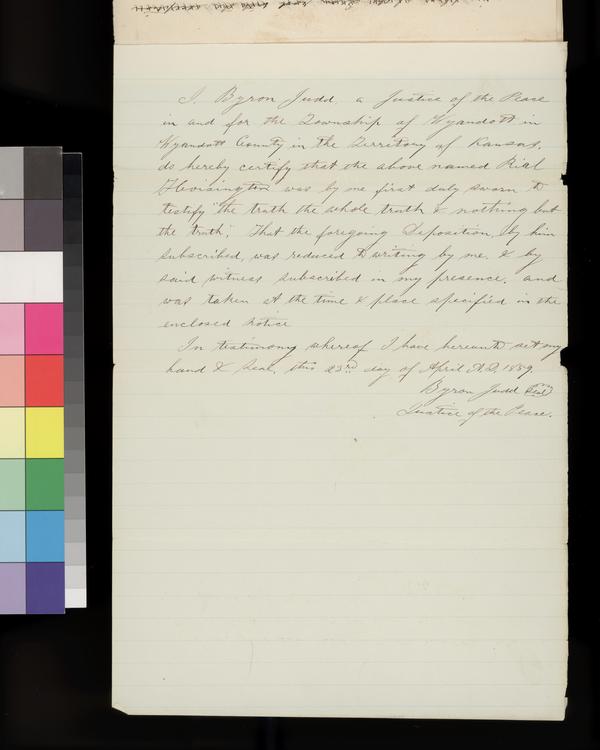 I, Byron Judd, a Justice of the Peace
in and for the Township of Wyandott in
Wyandott County in the Territory of Kansas,
do hereby certify that the above named Rial
was by me first duly sworn to
testify "the truth the whole truth & nothing but
the truth"; That the foregoing Deposition, by him
subscribed, was reduced to writing by me, & by
said witness subscribed in my presence, and
was taken at the time & place specified in the
enclosed notice
In testimony whereof I have hereunto set my
hand & seal, this 23rd day of April A.D. 1859.
Byron Judd Seal
Justice of the Peace.